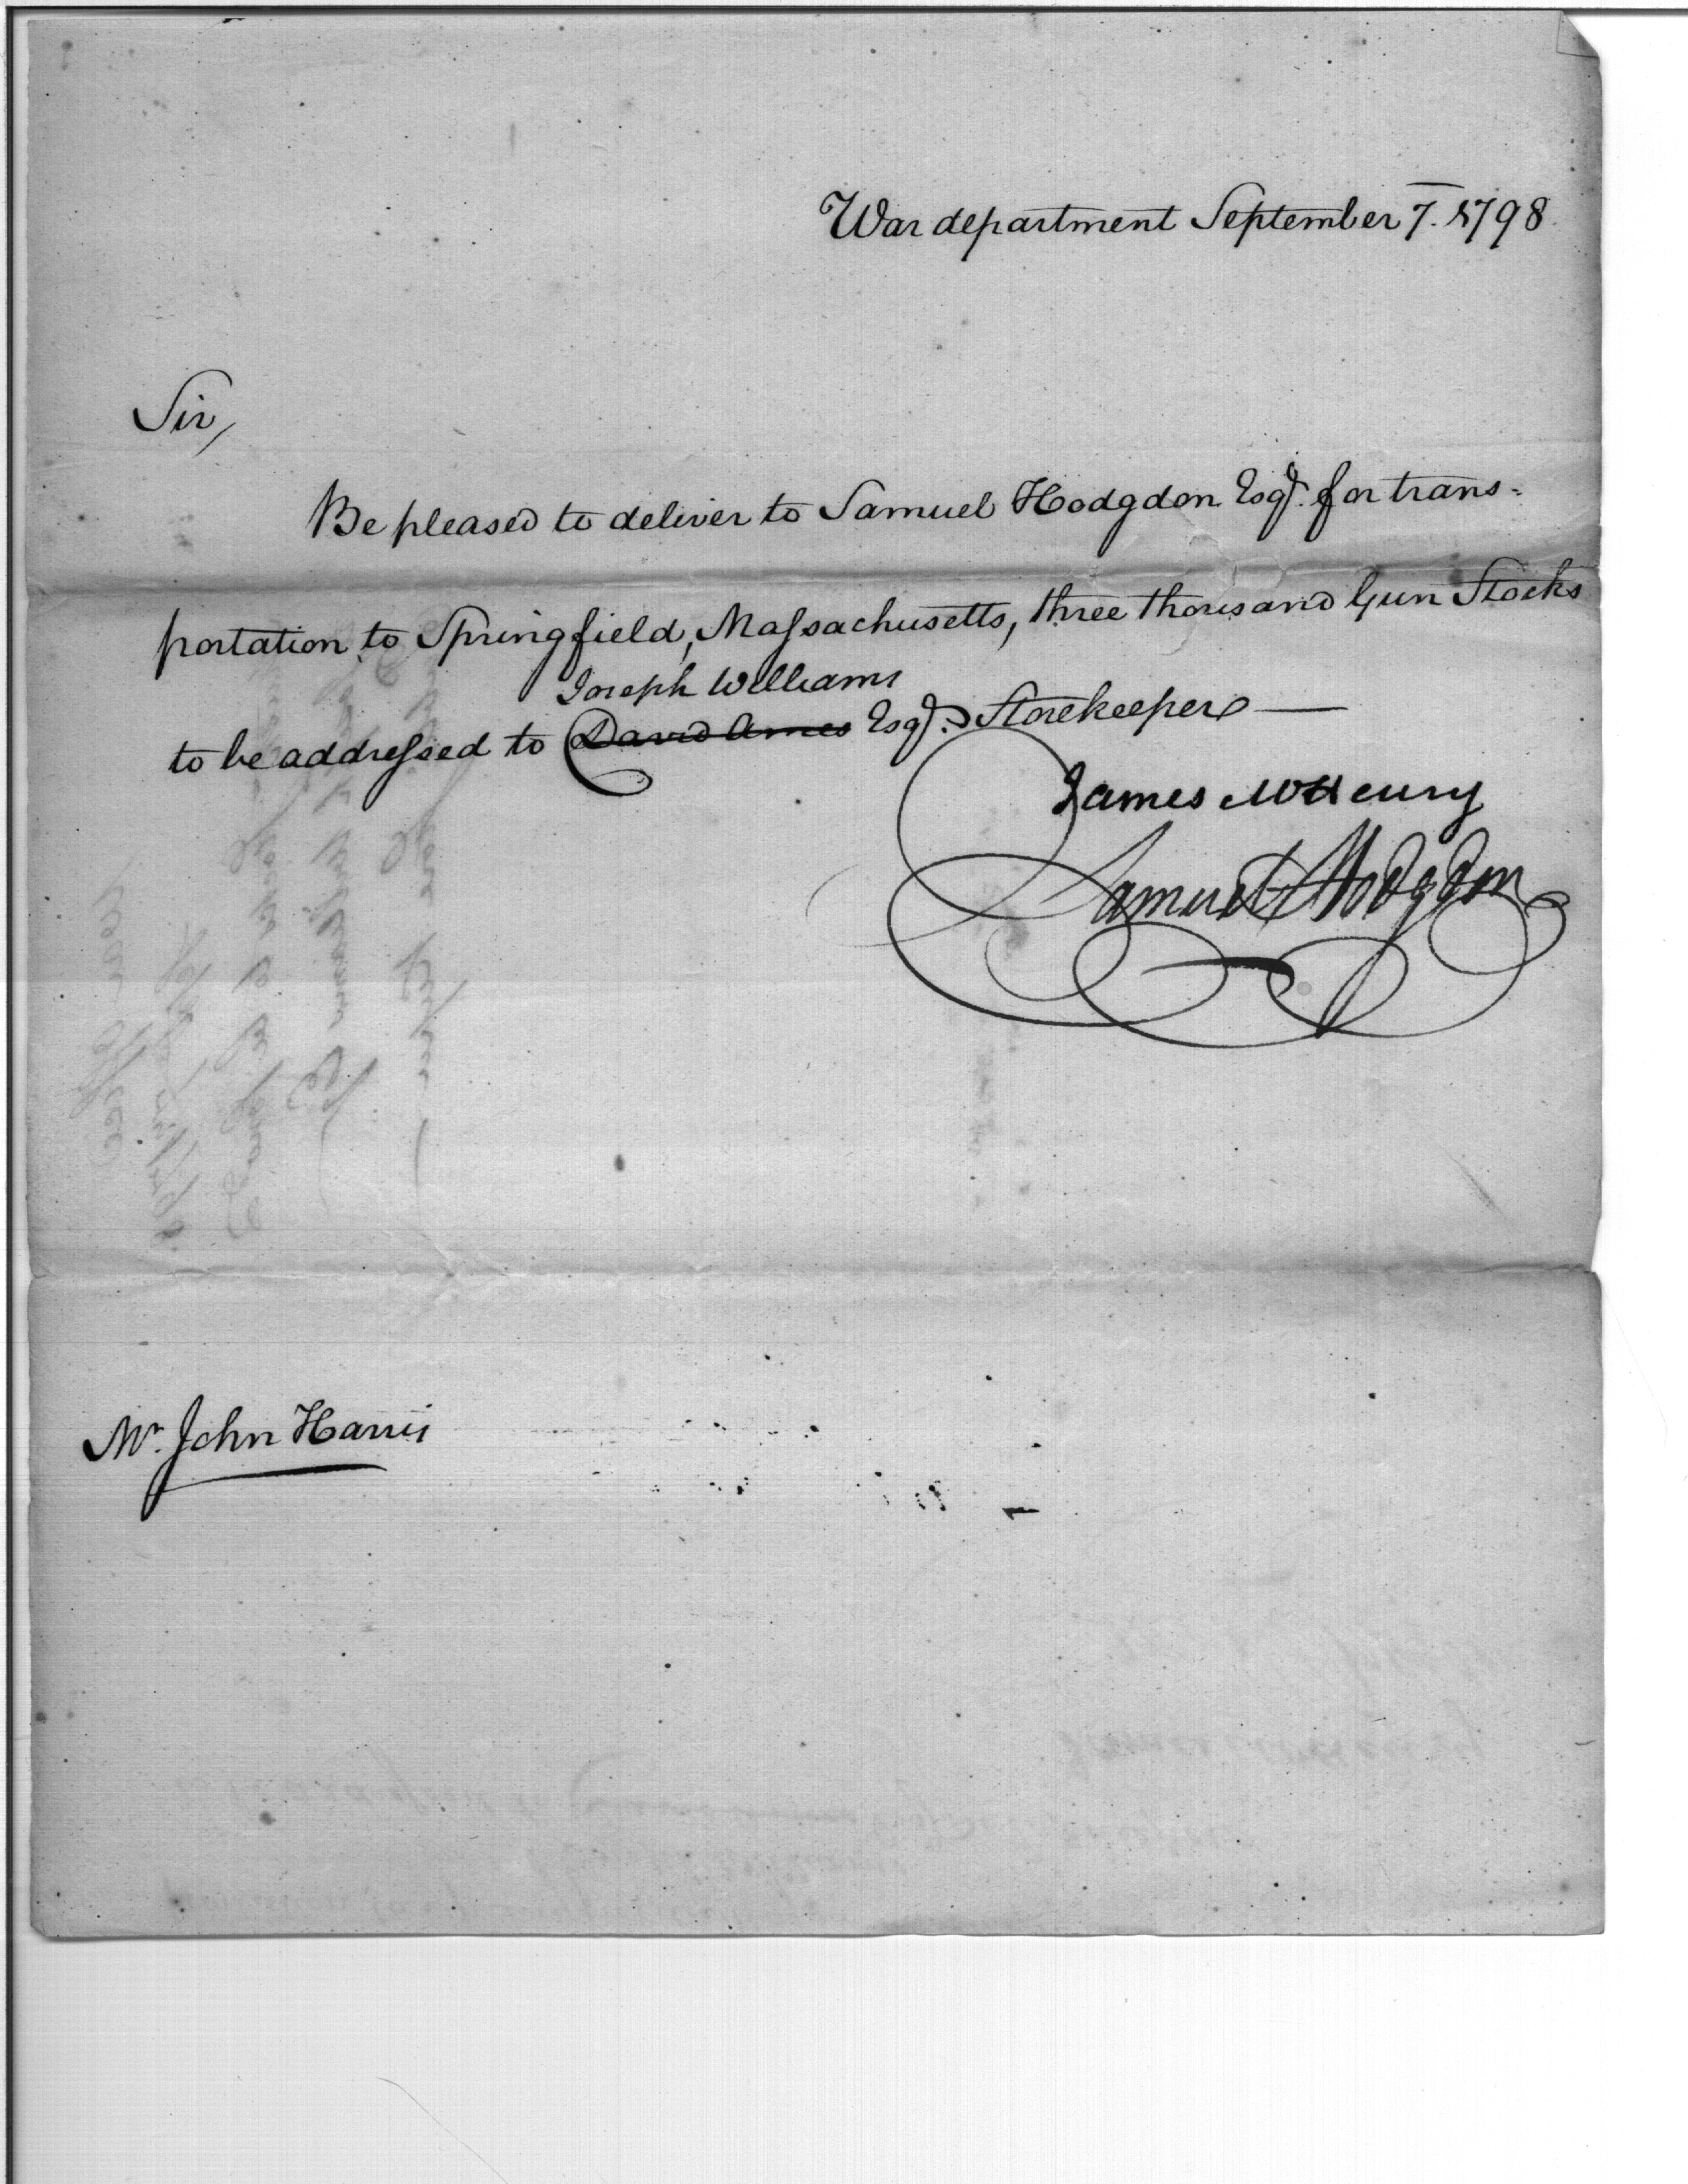 War department September 7. 1798
Sir,
Be pleased to deliver to Samuel Hodgdon Esqr. for trans-
portation to Springfield, Massachusetts, three thousand Gun Stocks
Joseph Williams
to be addressed to David Ames Esqr. Storekeeper
James McHenry
Samuel Hodgdon
Mr. John Harris